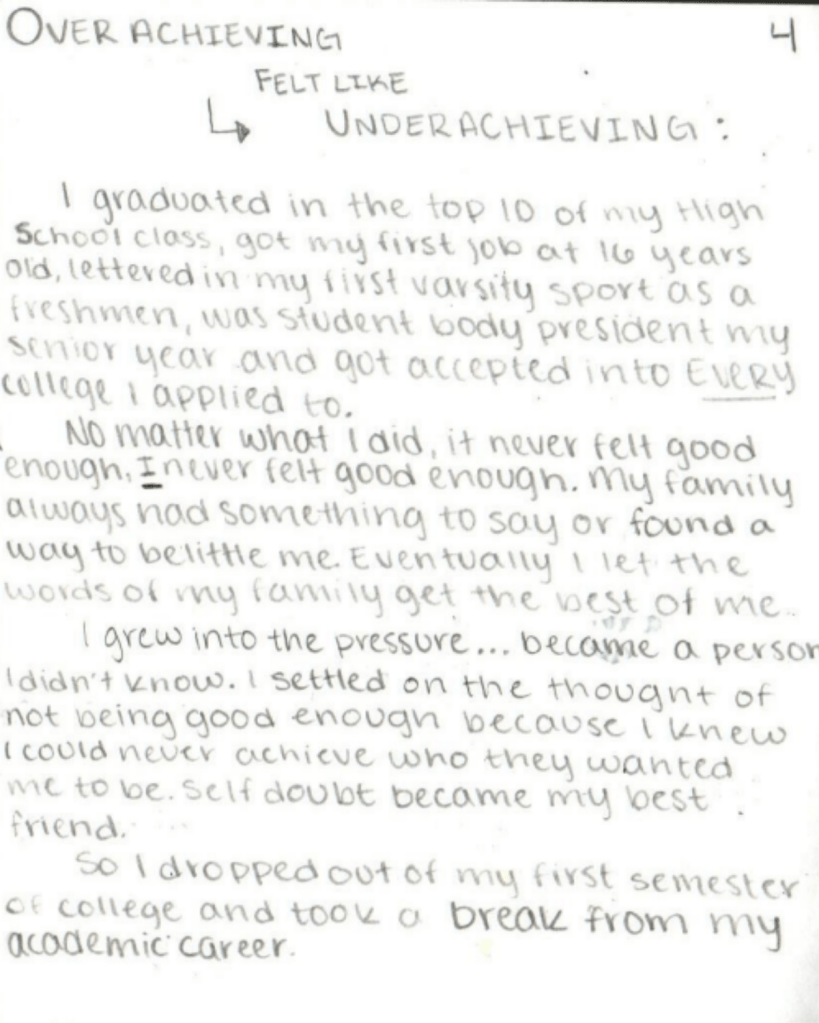 OVER ACHIEVING 4
FELT LIKE
↳ UNDERACHIEVING:
I graduated in the top 10 of my High
School class, got my first job at 16 years
old, lettered in my first varsity sport as a
freshmen, was student body president my
senior year and got accepted into EVERY
college I applied to.
No matter what I did, it never felt good
enough, I never felt good enough. My family
always had something to say or found a
way to belittle me. Eventually I let the
words of my family get the best of me.
I grew into the pressure... became a person
I didn't know. I settled on the thought of
not being good enough because I knew
I could never achieve who they wanted
me to be. Self doubt became my best
friend.
So I dropped out of my first semester
of college and took a break from my
academic career.